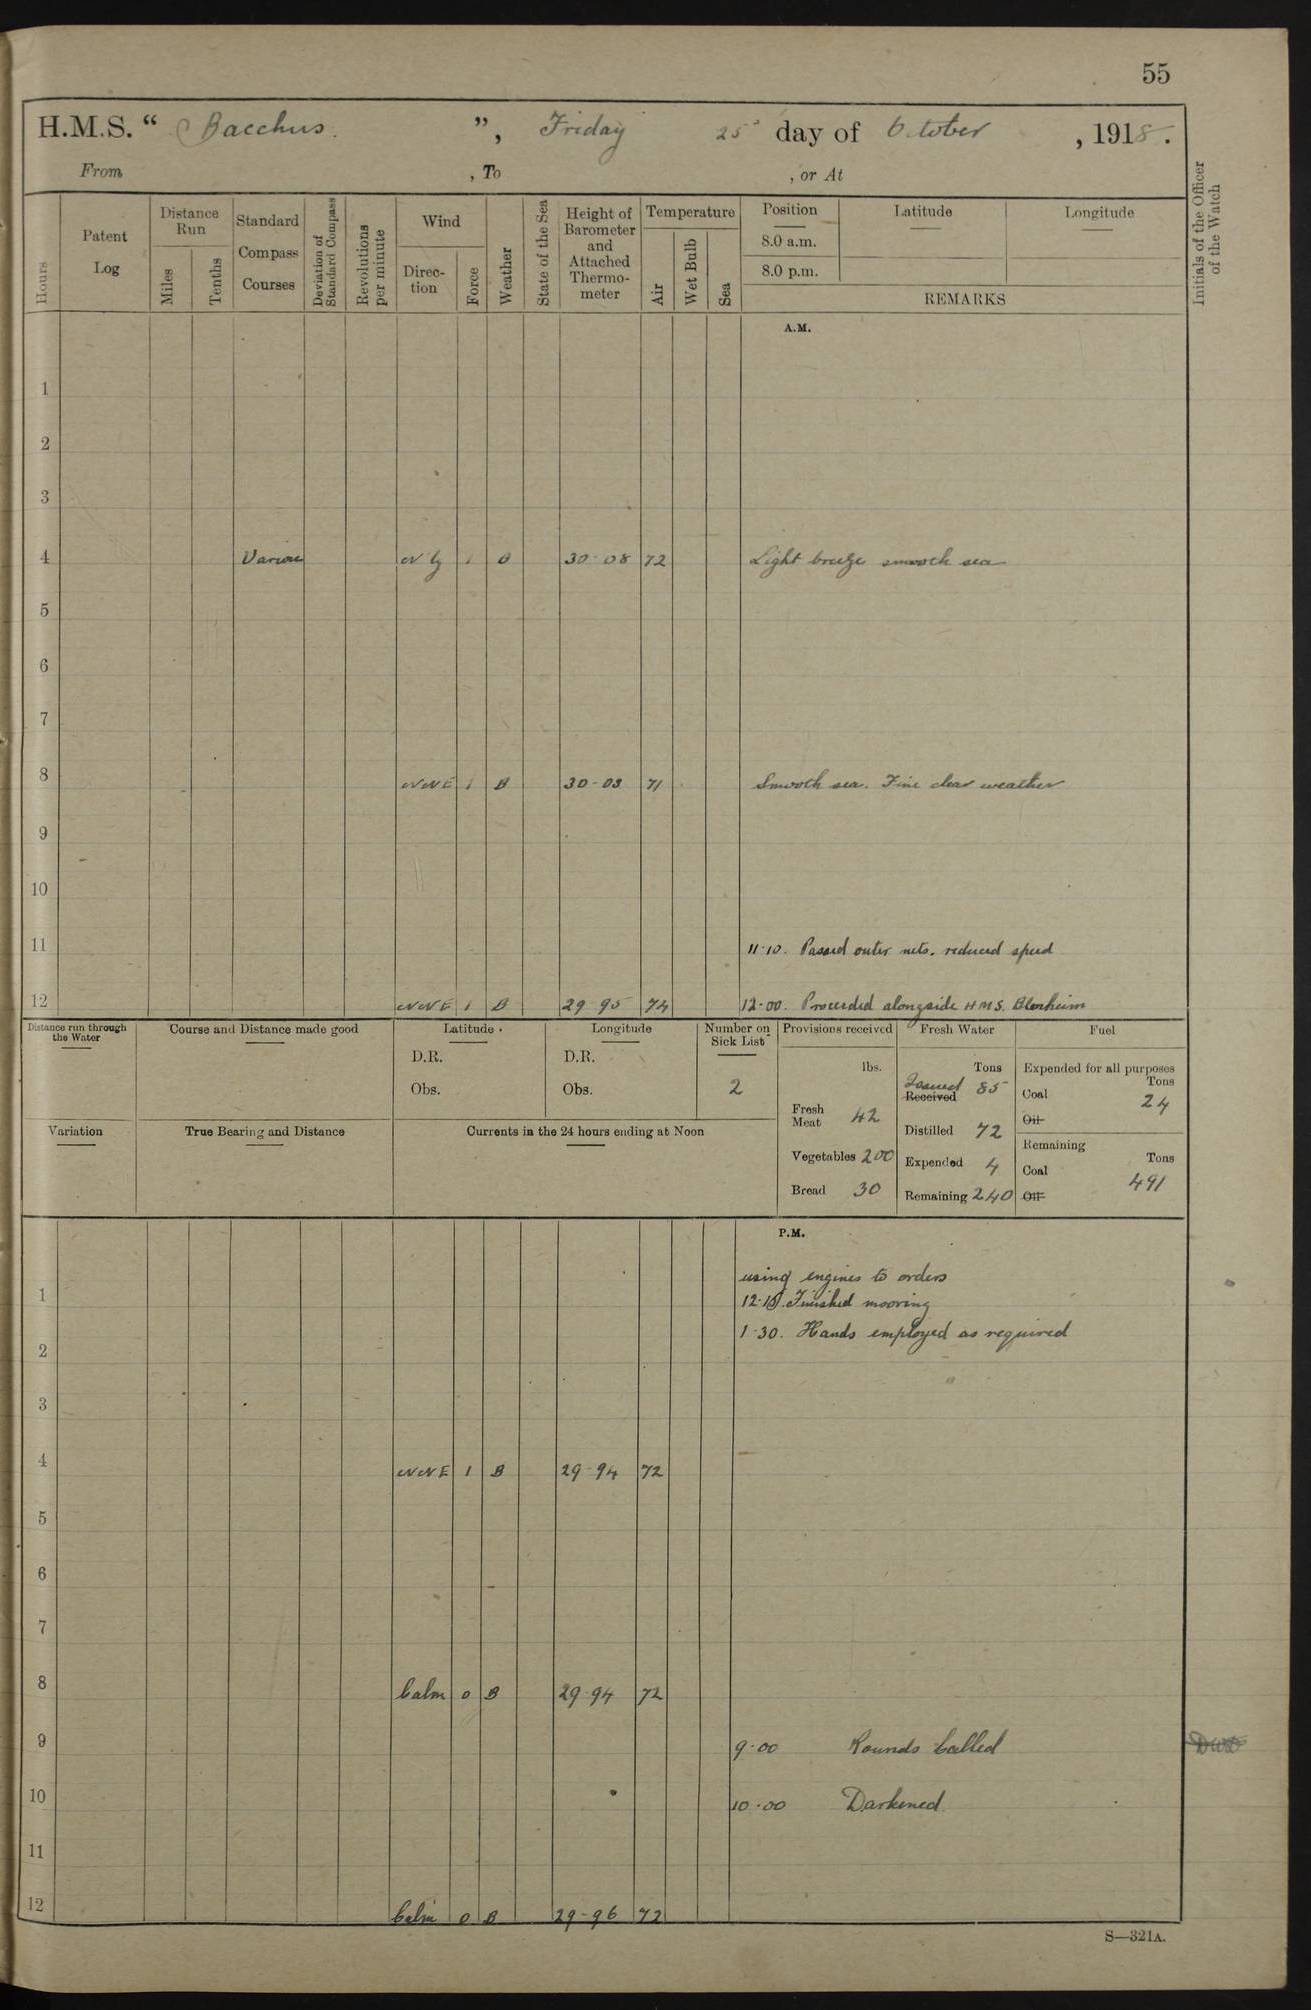 55
H.M.S. “ Bacchus ”, Friday 25 day of October , 1918.
From , To , or At
Hours
Patent Log
Distance Run
Miles
Tenths
Standard Compass Courses
Deviation of Standard Compass
Revolutions per minute
Wind
Direc- tion
Force
Weather
State of the Sea
Height of Barometer and Attached Thermo- meter
Temperature
Air
Wet Bulb
Sea
Position
8.0 a.m.
8.0 p.m.
Latitude
Longitude
REMARKS
Initials of the Officer of the Watch
A.M.
1
2
3
4 N'ly 1 B 30-08 72 Light breeze smooth sea
5
6
7
8 NNE 1 B 30-03 71 Smooth sea. Fine clear weather
9
10
11 11-10. Passed outer nets. reduced speed
12 NNE 1 B 29-95 74 12-00. Proceeded alongside HMS. Blenheim
Distance run through the Water
Course and Distance made good
Latitude
D.R.
Obs.
Longitude
D.R.
Obs.
Number on Sick List
2
Provisions received
lbs.
Fresh Meat 42
Vegetables 200
Bread 30
Fresh Water
Tons
Issued
Received 85
Distilled 72
Expended 4
Remaining 240
Fuel
Expended for all purposes
Tons
Coal 24
Oil
Remaining
Tons
Coal 491
Oil
Variation
True Bearing and Distance
Currents in the 24 hours ending at Noon
P.M.
using engines to orders
1 12-15. Finished mooring
1-30. Hands employed as required
2
3
4 NNE 1 B 29-94 72
5
6
7
8 Calm 0 B 29-94 72
9 9-00 Rounds Called
10 10-00 Darkened
11
12 Calm 0 B 29-96 72
S—321A.